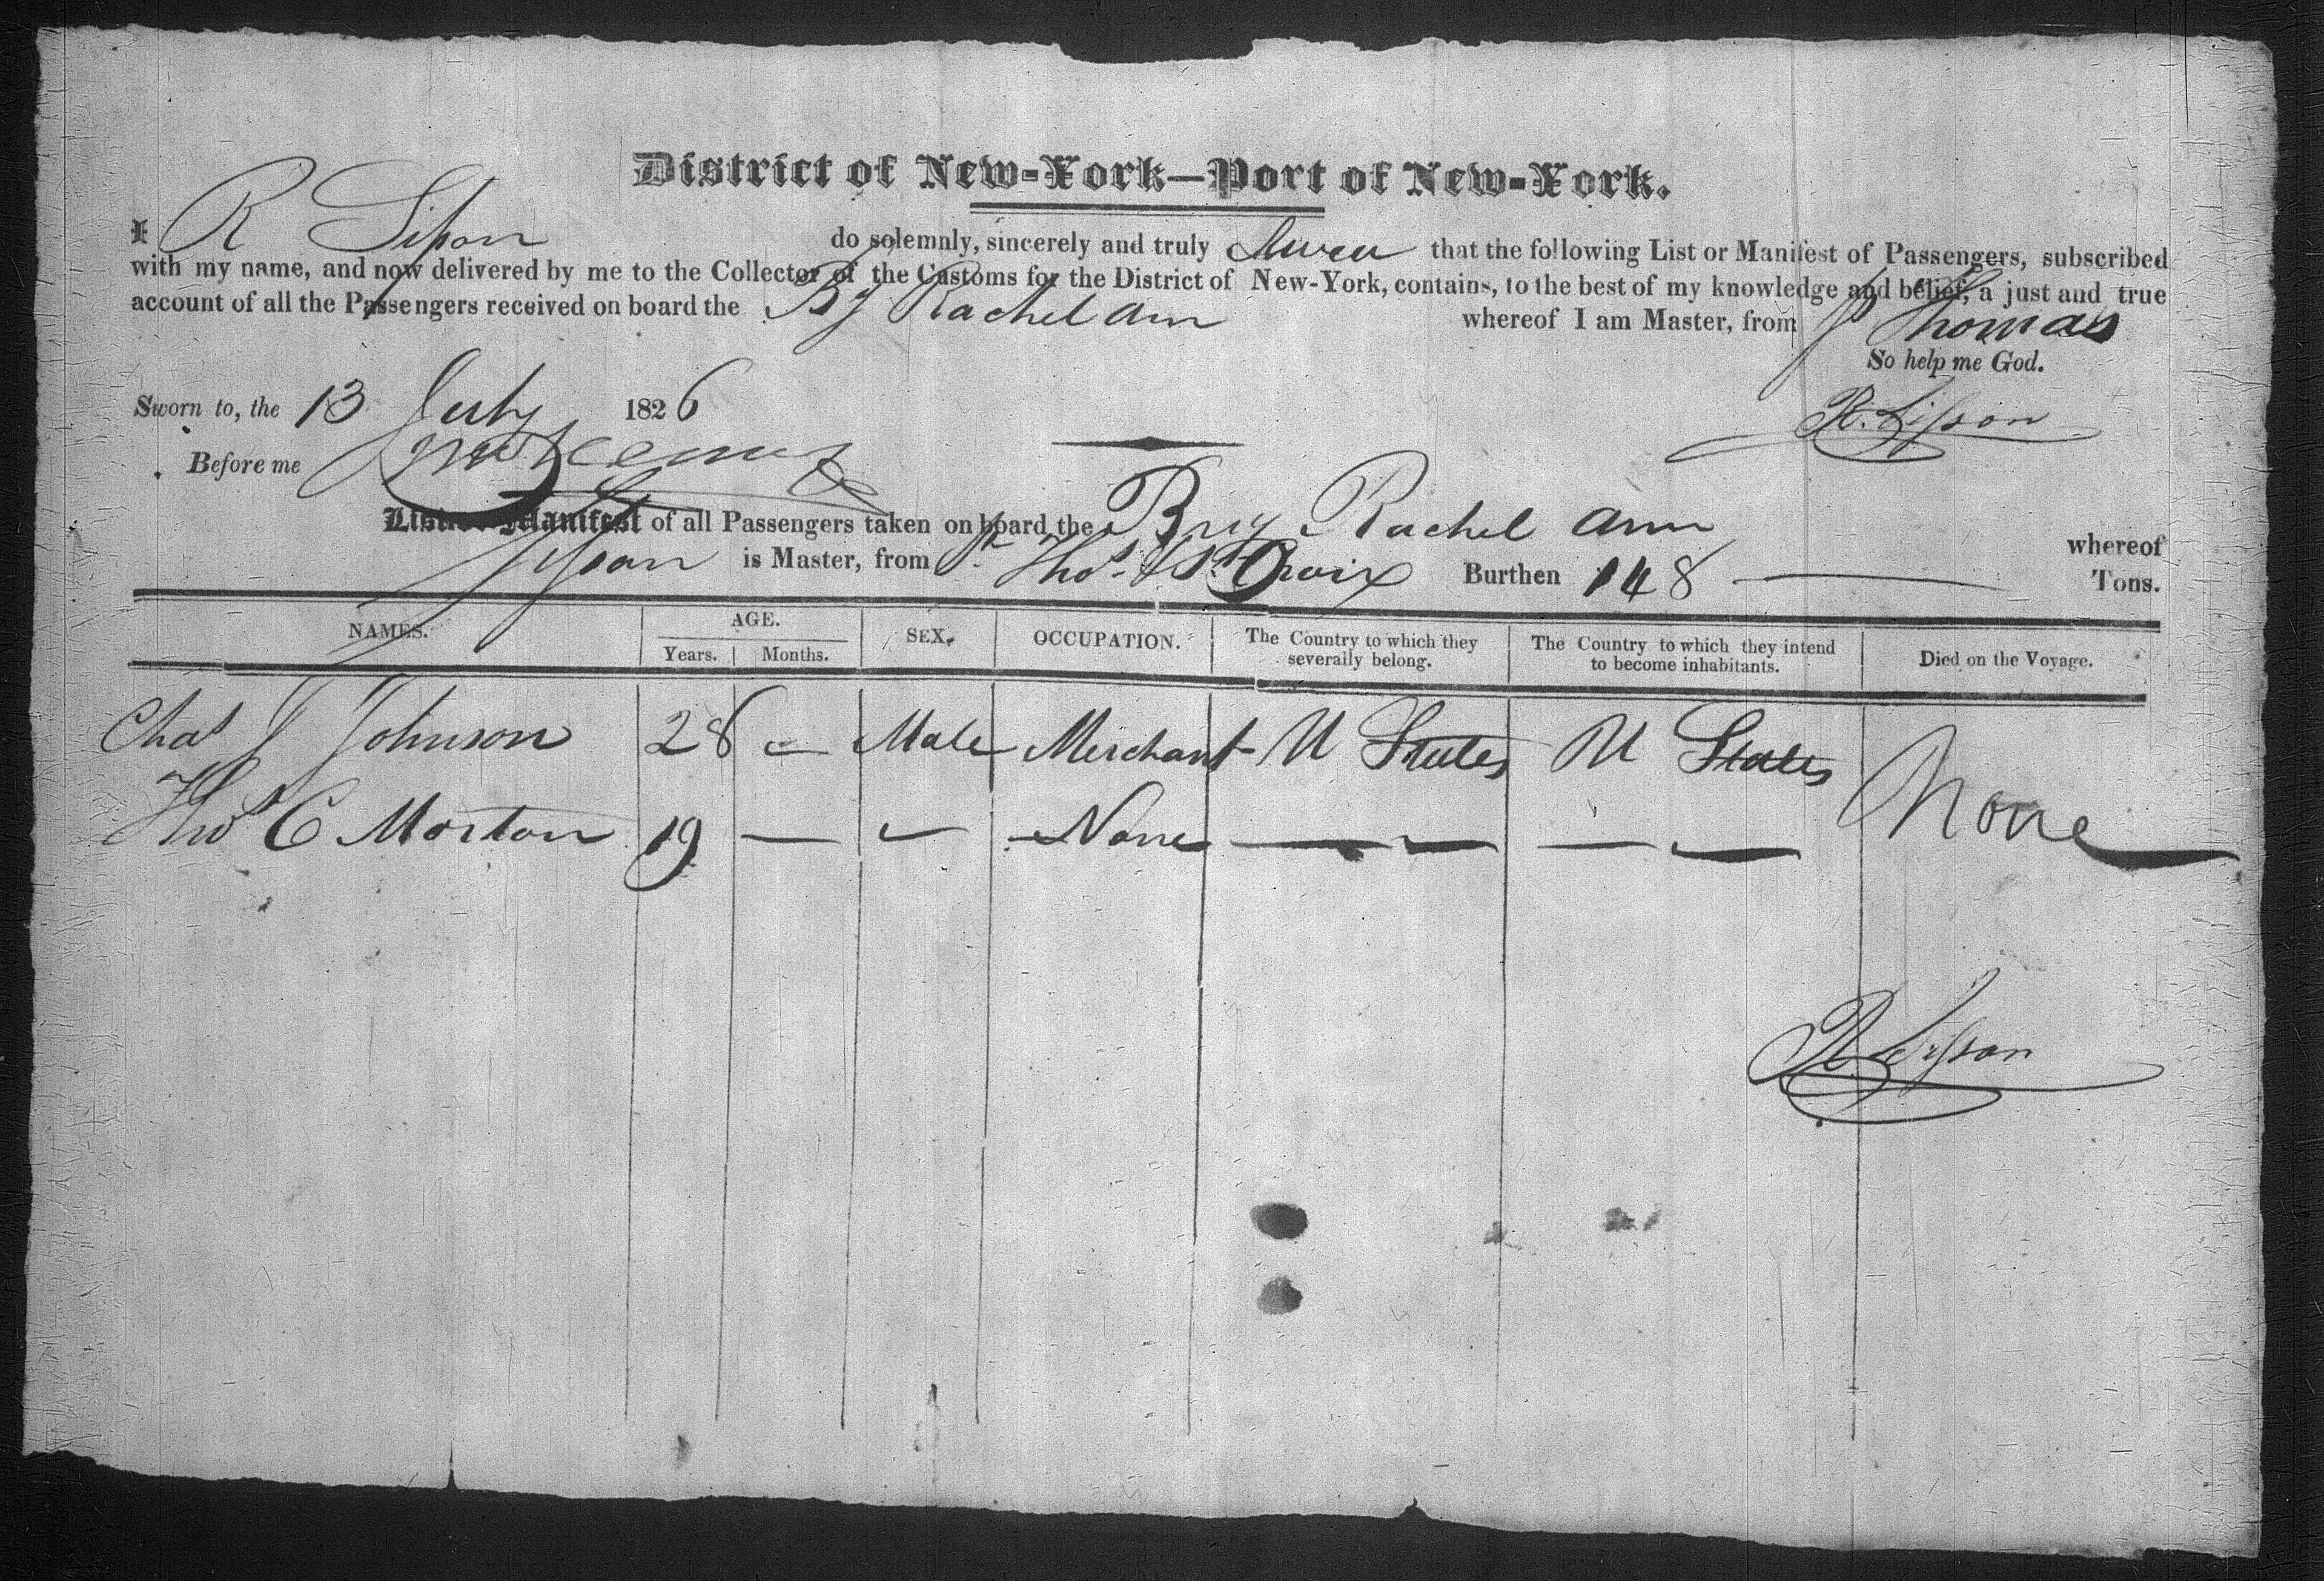 District of New-York—Port of New-York.
I R Sisson do solemnly, sincerely and truly swear that the following List or Manifest of Passengers, subscribed
with my name, and now delivered by me to the Collector of the Customs for the District of New-York, contains, to the best of my knowledge and belief, a just and true
account of all the Passengers received on board the Bg Rachel Ann whereof I am Master, from St Thomas
So help me God.
Sworn to, the 13 July 1826
R. Sisson
Before me
List or Manifest of all Passengers taken on board the Brig Rachel Ann whereof
Sisson is Master, from St. Thos. & St. Croix Burthen 148 Tons.
NAMES. AGE. SEX. OCCUPATION. The Country to which they severally belong. The Country to which they intend to become inhabitants. Died on the Voyage.
Years. Months.
Chas J Johnson 28 — Male Merchant U States U States None
Thos C Morton 19 — — None — — — —
R. Sisson